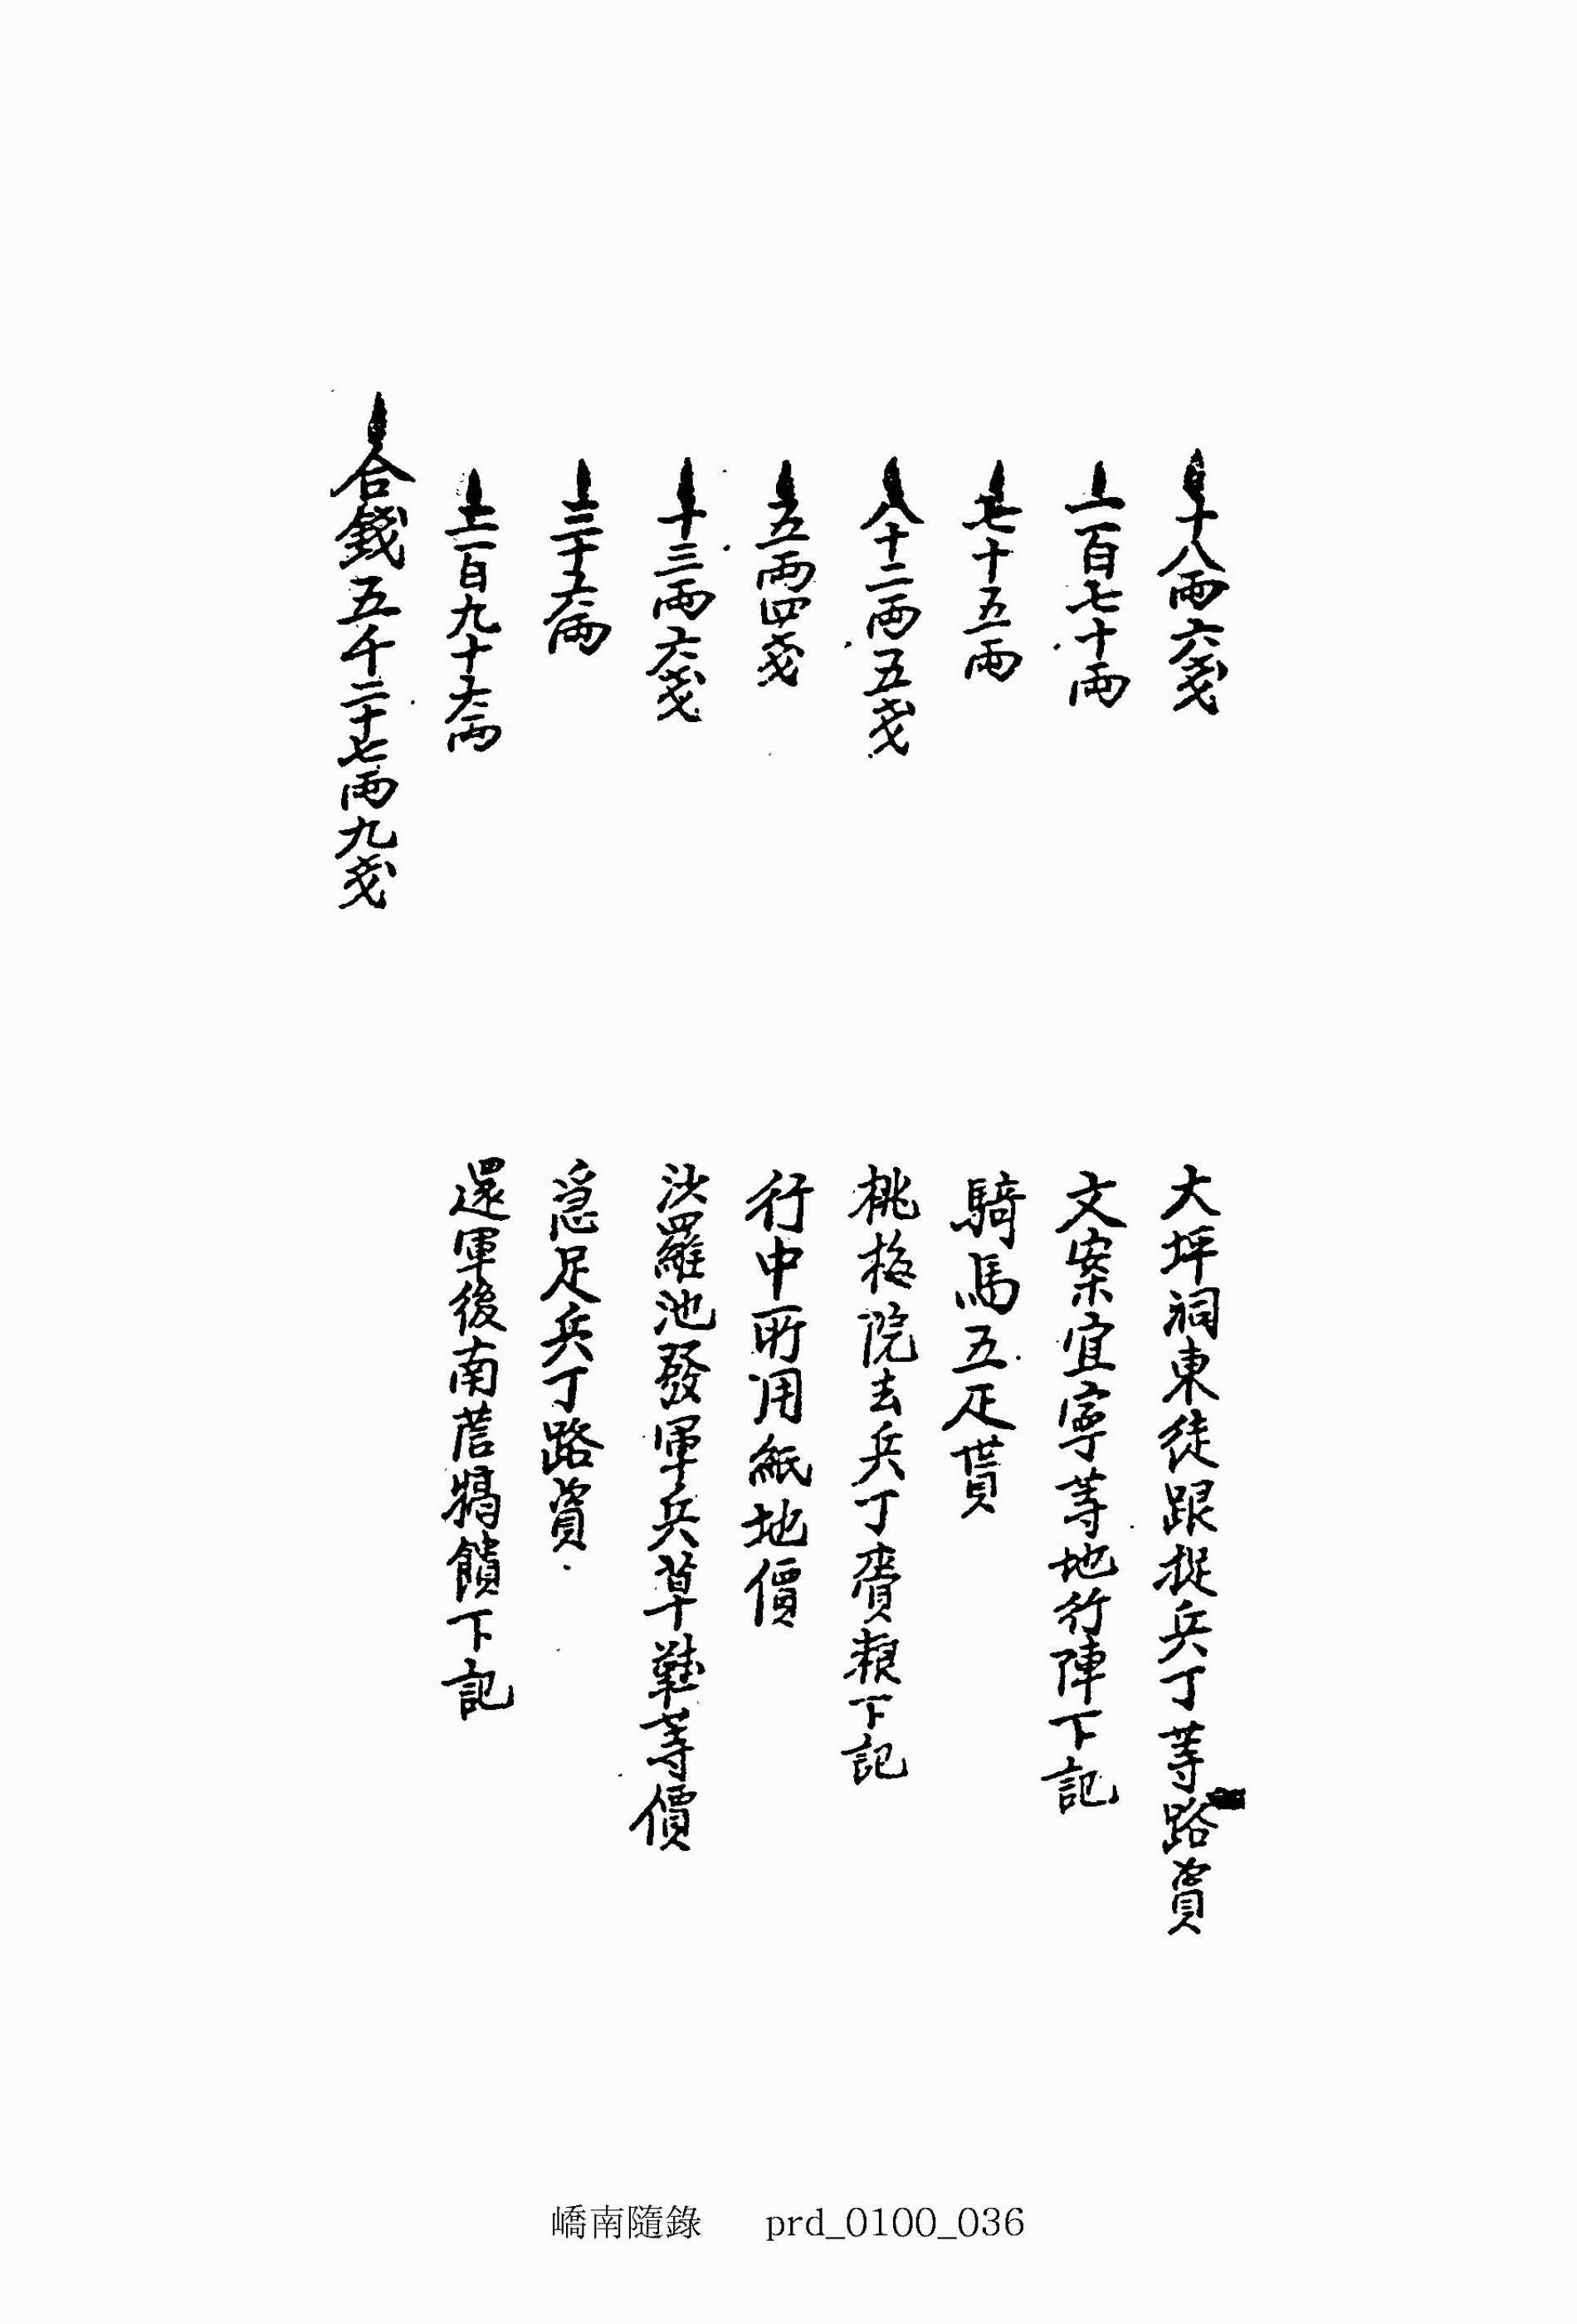 一十八兩六戔 大坪祠東徒跟捉兵丁等路資
一一百七十兩 文案宜寧等地行陣下記
一七十五兩 騎馬五疋貰
一八十二兩五戔 桃梅院去兵丁賫粮下記
一五兩四戔 行中所用紙地價
一十三兩六戔 沙羅池發軍兵草鞋等價
一三十六兩 急足兵丁路資
一二百九十六兩 還軍後南營犒饋下記
一合錢五千二十七兩九戔
嶠南隨錄 prd_0100_036